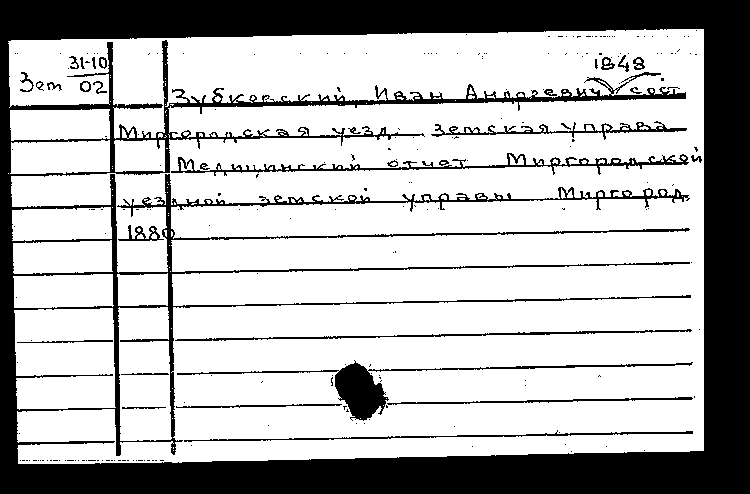 31-10
Зет 02
1848
Зубковский, Иван Андреевич, сост
Миргородская уезд. земская управа
Медицинский отчет Миргородской
уездной земской управы Миргород,
1880